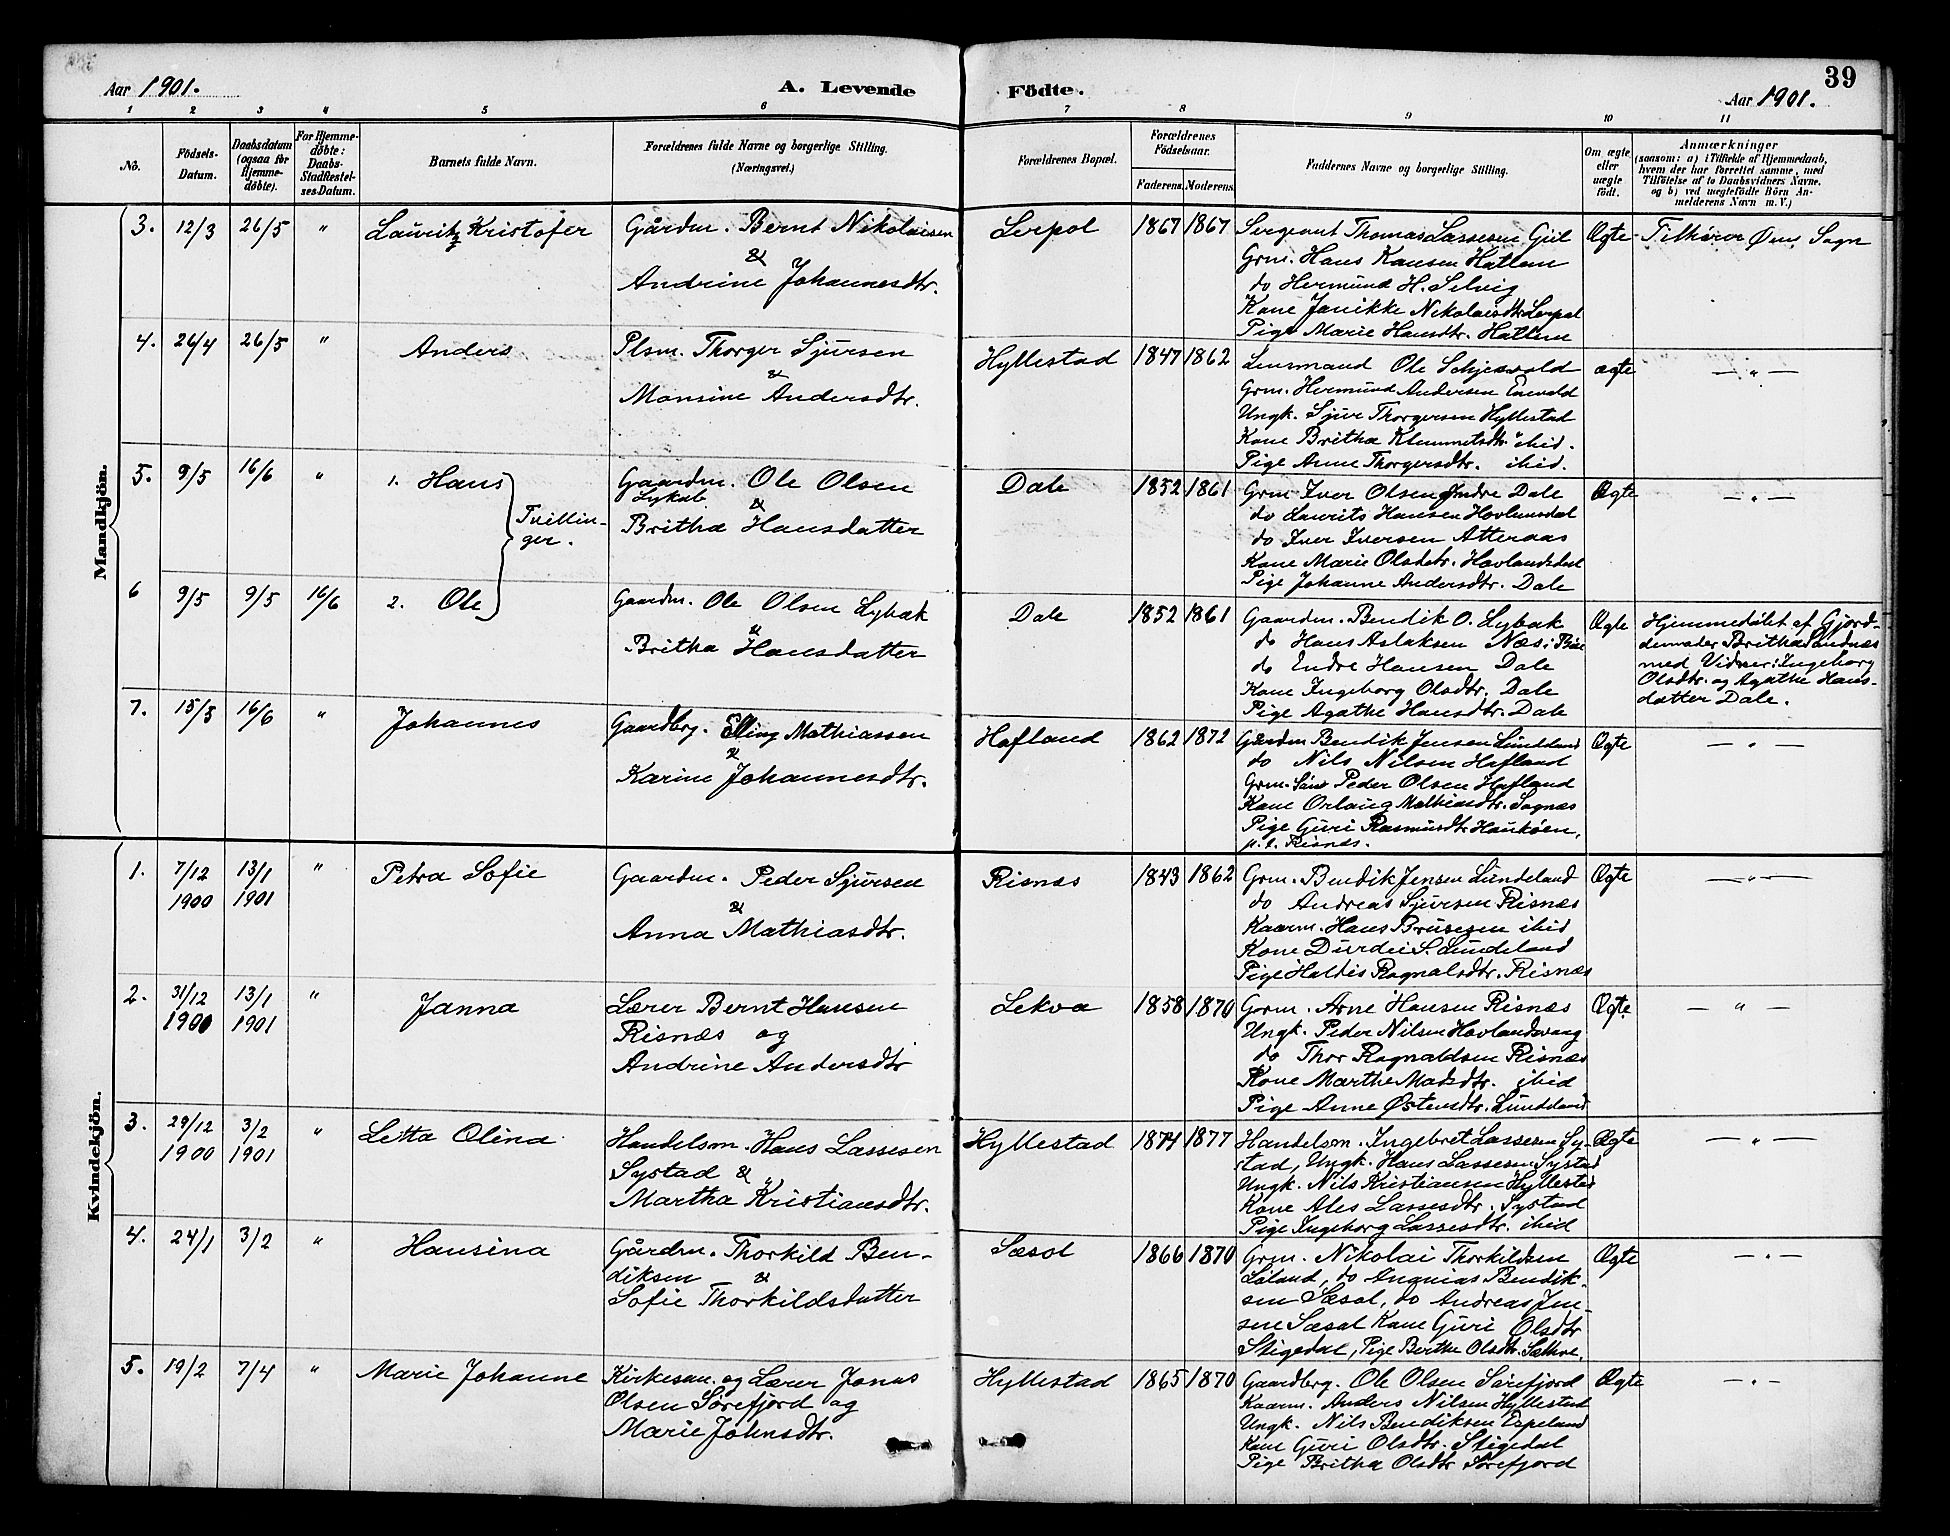 Aar 1901.
A. Levende
Födte.
39
Aar 1901.
1 2 3 4 5 6 7 8 9 10 11
No.
Födsels-
Datum.
Daabsdatum
(ogsaa for
Hjemme-
döbte).
For Hjemme-
döbte:
Daabs-
Stadfæstel-
ses-Datum.
Barnets fulde Navn.
Forældrenes fulde Navne og borgerlige Stilling.
(Næringsvei.)
Forældrenes Bopæl.
Forældrenes
Födselsaar.
Faderens. Moderens.
Faddernes Navne og borgerlige Stilling.
Om ægte
eller
uægte
födt.
Anmærkninger
(saasom: a) i Tilfælde af Hjemmedaab,
hvem der har forrettet samme, med
Tilföielse af to Daabsvidners Navne.
og b) ved uægtefödte Börn An-
melderens Navn m. V.)
Mandkjön.
3. 12/3 26/5 " Lauritz Kristofer
Gårdm. Bernt Nikolaisen
&
Andrine Johannesdtr.
Lerpol 1867 1867
Sergeant Thomas Lassesen Gjil
Grm. Hans Hansen Hatlem
do Hermund H. Selvig
Kone Janikke Nikolaisdtr. Lerpol
Pige Marie Hansdtr. Hatlem
Ægte Tilhører Øens Sogn
4. 26/4 26/5 " Anders
Plsm. Thorger Sjursen
&
Monsine Andersdtr.
Hyllestad 1847 1862
Lensmand Ole Schjesvold
Grm. Hermund Andersen Enevold
Ungk. Sjur Thorgersen Hyllestad
Kone Britha Klemmetsdtr. ibid.
Pige Anne Thorgersdtr. ibid.
ægte — " —
5. 9/5 16/6 " 1. Hans
Tvillin-
ger.
Gaardm. Ole Olsen
Lybæk &
Britha Hansdatter
Dale 1852 1861
Grm. Iver Olsen Indre Dale
do Laurits Hansen Hovlandsdal
do Iver Iversen Atteraas
Kone Marie Olsdtr. Hovlandsdal
Pige Johanne Andersdtr. Dale
Ægte — " —
6 9/5 9/5 16/6 2. Ole
Gaardm. Ole Olsen Lybæk
&
Britha Hansdatter
Dale 1852 1861
Gaardm. Bendik O. Lybæk
do Hans Aslaksen Næs i Bøe
do Endre Hansen Dale
Kone Ingeborg Olsdtr. Dale
Pige Agathe Hansdtr. Dale
Ægte
Hjemmedøbt af Gjord-
demoder Britha Sandnæs
med Vidner: Ingeborg
Olsdtr. og Agathe Hans-
datter Dale.
7. 15/5 16/6 " Johannes
Gaardbrg. Elling Mathiassen
&
Karine Johannesdtr.
Hafland 1862 1872
Gårdm Bendik Jensen Lundeland
do Nils Nilsen Hafland
Grm. Søn Peder Olsen Hafland
Kone Orlaug Mathiasdtr. Sognæs
Pige Guri Rasmusdtr. Haukøen,
p. t. Risnæs.
Ægte — " —
Kvindekjön.
1. 7/12 13/1 " Petra Sofie
1900 1901
Gaardm. Peder Sjursen
&
Anna Mathiasdtr.
Risnæs 1843 1862
Grm. Bendik Jensen Lundeland
do Andreas Sjursen Risnæs
Kaarm. Hans Brusesen ibid
Kone Durdei S. Lundeland
Pige Haldis Ragnalsdtr. Risnæs
Ægte — " —
2. 31/12 13/1 " Janna
1900 1901
Lærer Bernt Hansen
Risnæs og
Andrine Andersdtr
Lekva 1858 1870
Grm. Arne Hansen Risnæs
Ungk. Peder Nilsen Hovlandsvaag
do Thor Ragnaldsen Risnæs
Kone Marthe Madsdtr. ibid
Pige Anne Østensdtr. Lundeland
Ægte — " —
3. 29/12 3/2 " Letta Olina
1900 1901
Handelsm. Hans Lassesen
Systad &
Martha Kristiansdtr.
Hyllestad 1874 1877
Handelsm. Ingebret Lassesen Sy-
stad, Ungk. Hans Lassesen Systad
Ungk. Nils Kristiansen Hyllestad
Kone Ales Lassesdtr. Systad
Pige Ingeborg Lassesdtr. ibid
Ægte — " —
4. 24/1 3/2 " Hansina
Gårdm. Thorkild Ben-
diksen &
Sofie Thorkildsdatter
Sæsol 1866 1870
Grm. Nikolai Thorkildsen
Løland, do Ananias Bendik-
sen Sæsol, do Andreas Jen-
sen Sæsol Kone Guri Olsdtr
Stigedal, Pige Berthe Olsdtr. Sættre.
Ægte — " —
5. 19/2 7/4 " Marie Johanne
Kirkesan. og Lærer Jonas
Olsen Sørefjord og
Marie Johnsdtr.
Hyllestad 1865 1870
Gaardbrg. Ole Olsen Sørefjord
Kaarm. Anders Nilsen Hyllestad
Ungk. Nils Bendiksen Espeland
Kone Guri Olsdtr. Stigedal
Pige Britha Olsdtr Sørefjord
Ægte — " —